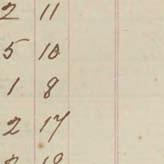 2 11
5 10
1 8
2 17